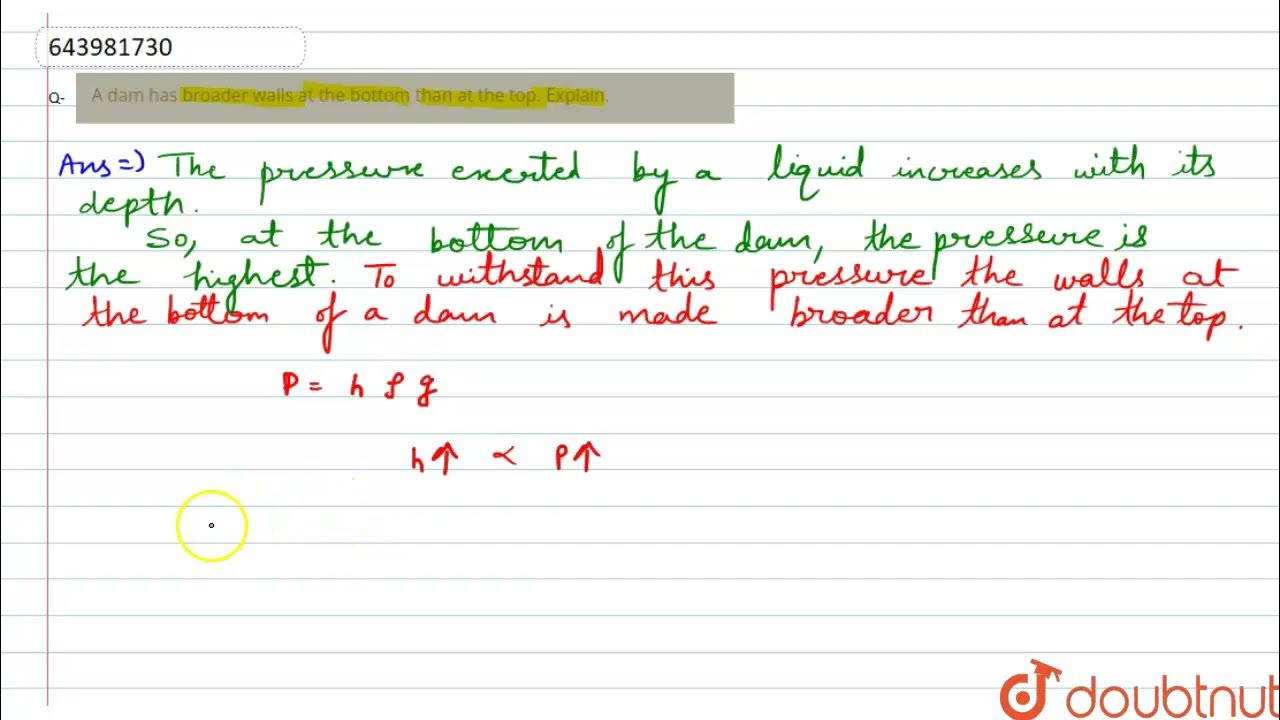 643981730
Q- A dam has broader walls at the bottom than at the top. Explain.
Ans=) The pressure exerted by a liquid increases with its
depth.
So, at the bottom of the dam, the pressure is
the highest. To withstand this pressure the walls at
the bottom of a dam is made broader than at the top.
P = h ρ g
h↑ ∝ P↑
doubtnut